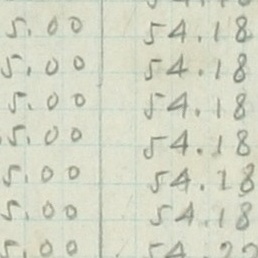 5.00 54.18
5.00 54.18
5.00 54.18
5.00 54.18
5.00 54.18
5.00 54.18
5.00